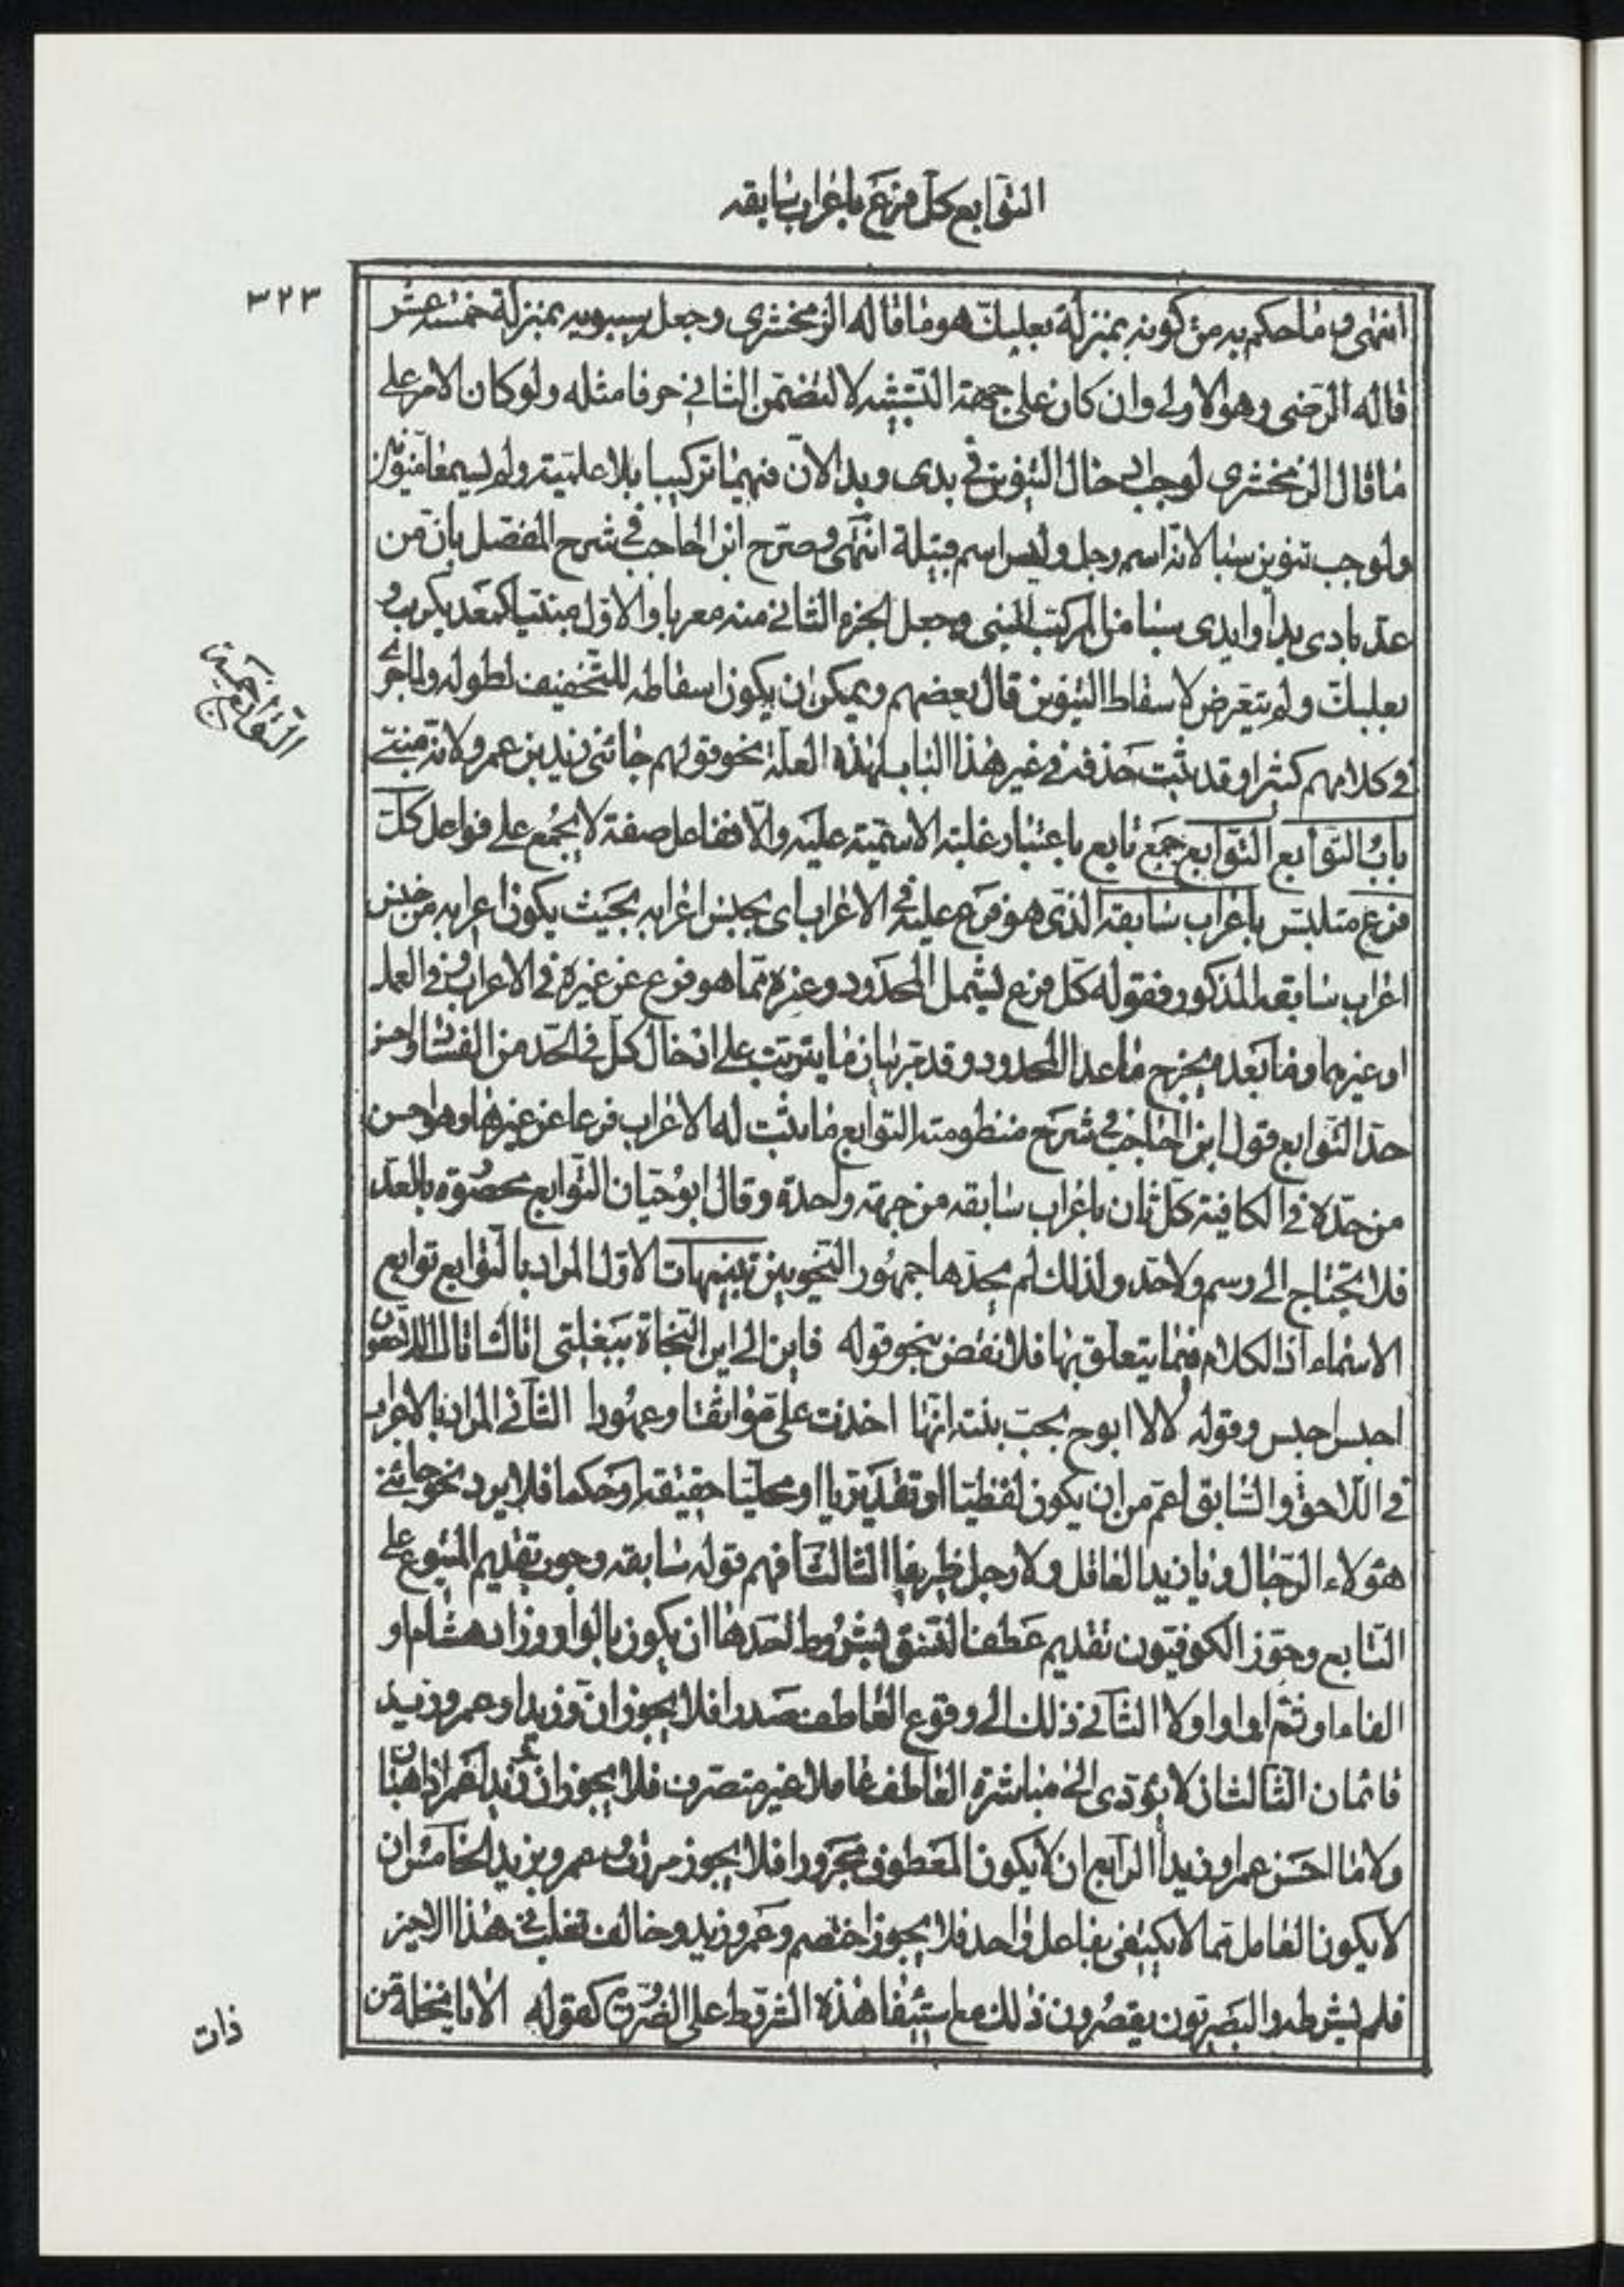 التوابع كل فرع باعراب سابقه
٣٢٣
انتهى و ما حكم به من كونه بمنزلة بعلبك هو ما قاله الزمخشرى وجعل سيبويه بمنزلة خمسة عشر
قاله الرضى وهو الاولى وان كان على جهة التشبيه لا لتضمن الثانى حرفا مثله ولو كان الامر على
ما قال الزمخشرى لوجب ادخال التنوين فى بدى وبد الان فيهما تركيبا بلا علمية ولم يسمعا منونين
ولوجب تنوين سبا لانه اسم رجل وليس اسم قبيلة انتهى وصرح ابن الحاجب فى شرح المفصل بان من
عد بادى بدا وايدى سبا من المركب المبنى وجعل الجزء الثانى منه معربا والاول مبنيا كمعديكرب و
بعلبك ولم يتعرض لاسقاط التنوين قال بعضهم ويمكن ان يكون اسقاطه للتخفيف لطوله ولما جرى
فى كلامهم كثيرا وقد ثبت حذفه فى غير هذا الباب لهذه العلة نحو قولهم جائنى زيد بن عمرو لانه مبنى
باب التوابع التوابع جمع تابع باعتبار غلبة الاسمية عليه والا ففاعل صفة لا يجمع على فواعل كل
فرع متلبس باعراب سابقه الذى هو فرع عليه فى الاعراب اى بجنس اعرابه بحيث يكون اعرابه من جنس
اعراب سابقه المذكور فقوله كل فرع ليشمل المحدود وغيره مما هو فرع عن غيره فى الاعراب او فى العمل
او غيرهما وما بعده يخرج ما عدا المحدود وقد مر بيان ما يترتب على ادخال كل فى الحد من الفساد واحسن
حد التوابع قول ابن الحاجب فى شرح منظومته التوابع ما ثبت له الاعراب فرعا عن غيرها وهو احسن
من حده فى الكافية كل ثان باعراب سابقه من جهة واحدة وقال ابوحيان التوابع محصورة بالعد
فلا تحتاج الى رسم ولا حد ولذلك لم يحدها جمهور النحويين تنبيهات الاول المراد بالتوابع توابع
الاسماء اذ الكلام فيما يتعلق بها فلا نقض بنحو قوله فاين الى اين النجاة ببغلتى اتاك اتاك اللاحقون
احبس احبس وقوله لا لا ابوح بحب بثنة انها اخذت على مواثقا وعهودا الثانى المراد بالاعراب
فى اللاحق والسابق اعم من ان يكون لفظيا او تقديريا او محليا حقيقة او حكما فلا يرد نحو جائنى
هؤلاء الرجال ويا زيد العاقل ولا رجل ظريفا الثالث افهم قوله سابقه وجوب تقديم المتبوع على
التابع وجوز الكوفيون تقديم عطف النسق بشروط احدها ان يكون بالواو وزاد هشام او
الفاء او ثم او او او لا الثانى ذلك الى وقوع العاطف صدرا فلا يجوز ان وزيدا وعمرو زيد
قائمان الثالث ان لا يؤدى الى مباشرة العاطف عاملا غير متصرف فلا يجوز ان وزيدا عمرا ذاهبان
ولا ما احسن وعمرا وزيدا الرابع ان لا يكون المعطوف مجرورا فلا يجوز مررت وعمرو بزيد الخامس ان
لا يكون العامل مما لا يكتفى بفاعل واحد فلا يجوز اختصم وعمرو زيد وخالف ثعلب فى هذا الاخير
فلم يشرطه والبصريون يقصرون ذلك مع استيفاء هذه الشروط على الضرورة كقوله الا يا نخلة من
ذات